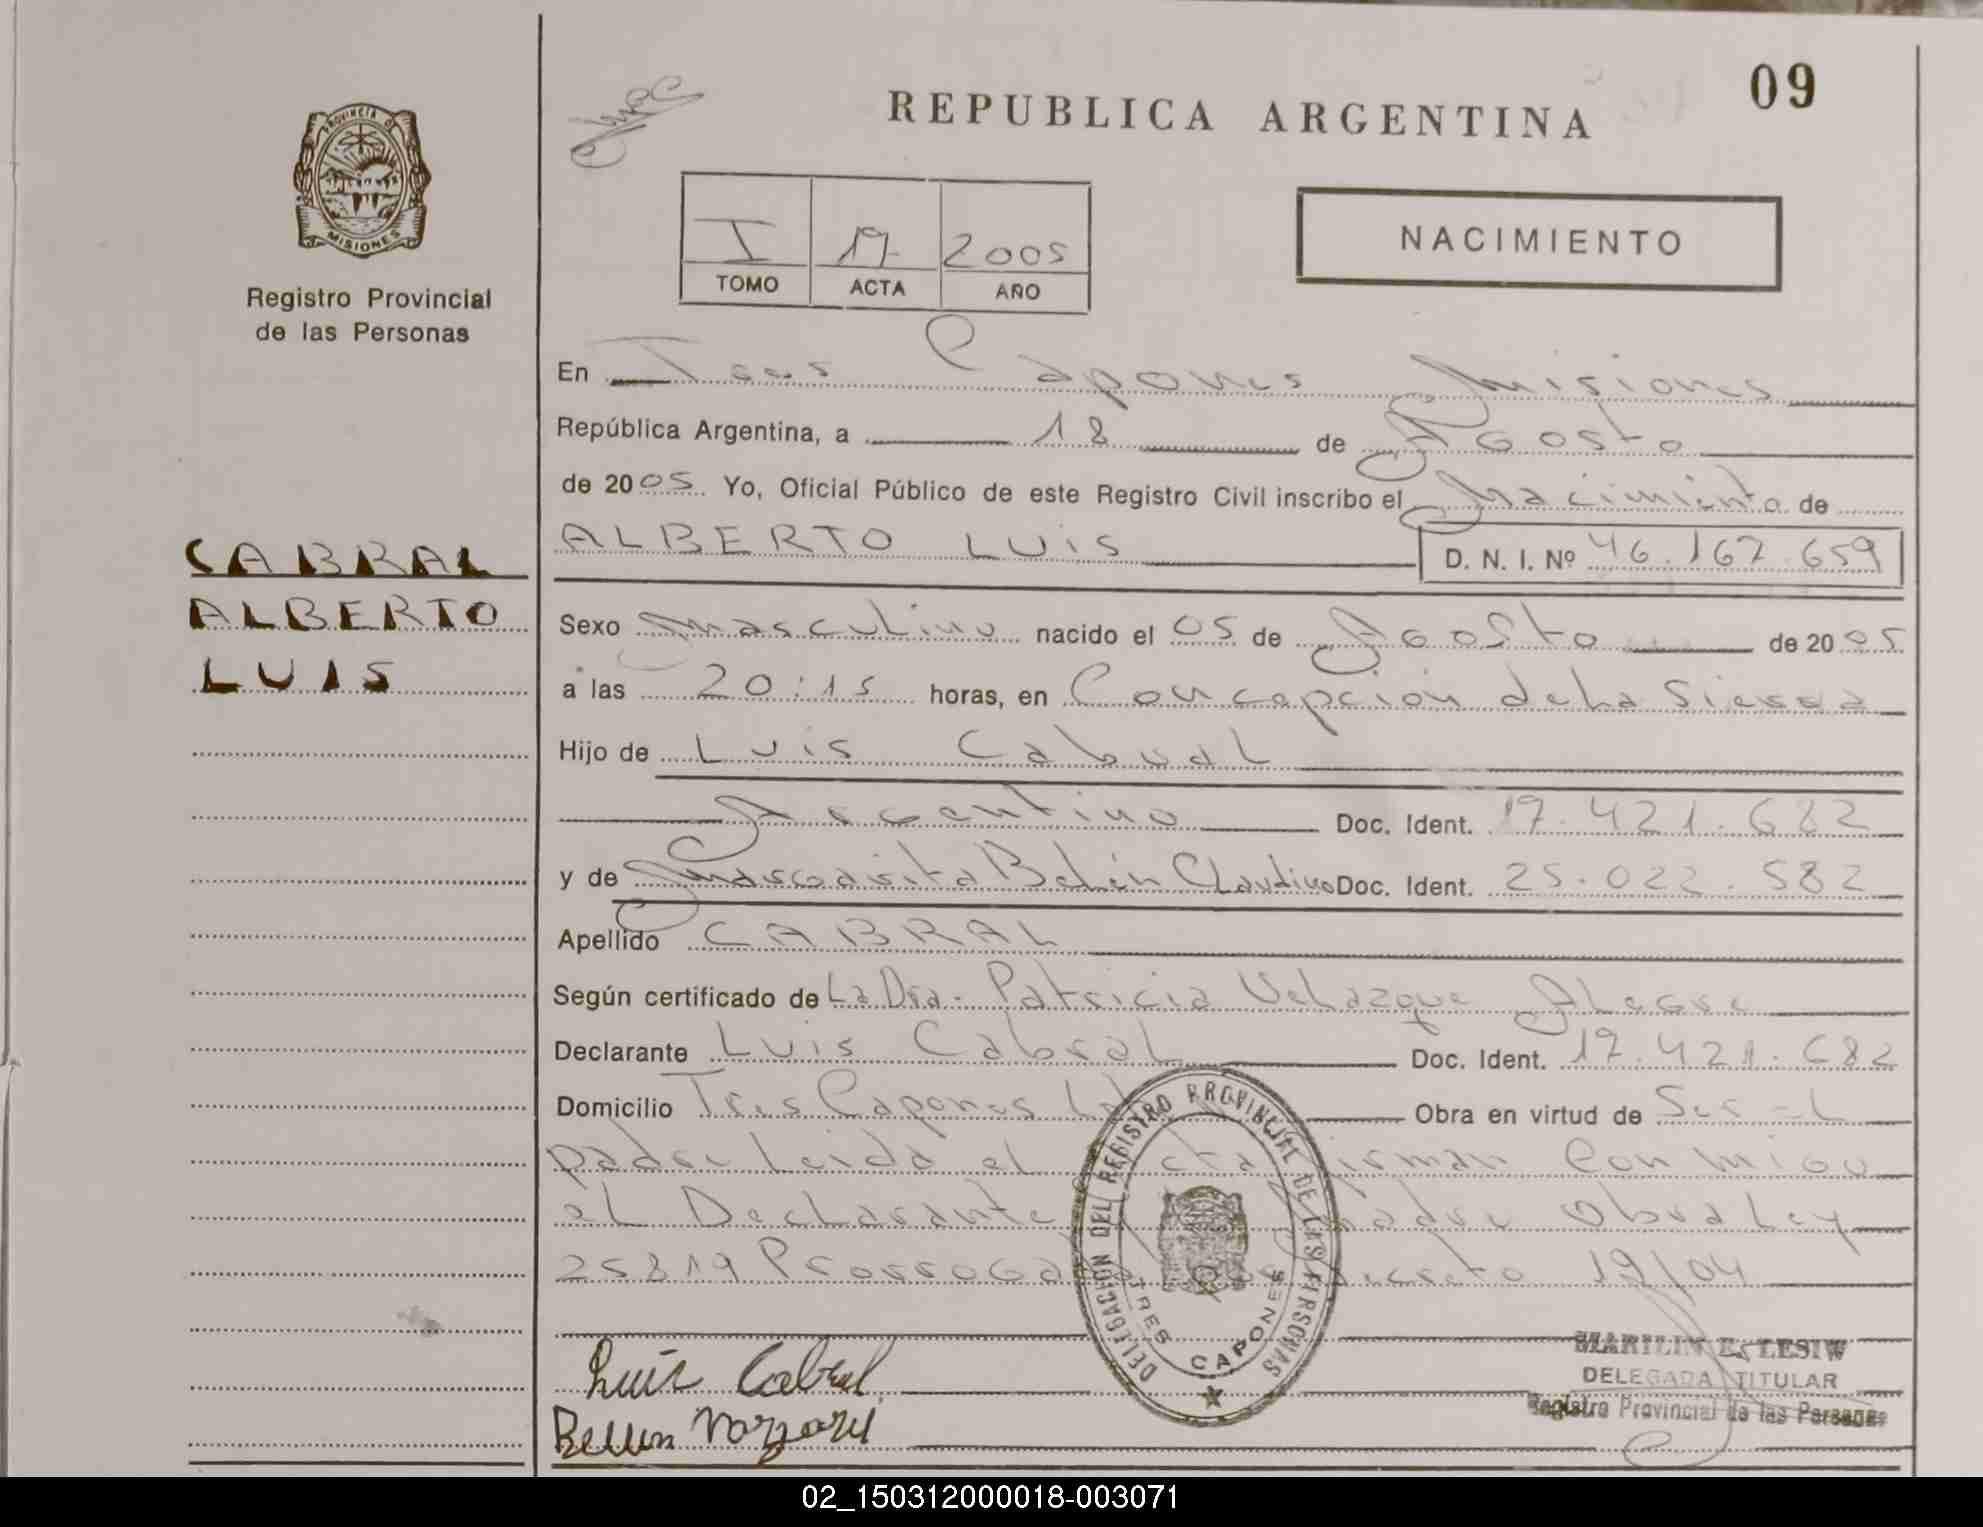 09
REPUBLICA ARGENTINA
PROVINCIA DE
MISIONES
Registro Provincial
de las Personas
I 19 2005
TOMO ACTA AÑO
NACIMIENTO
En Tres Capones Misiones
República Argentina, a 18 de Agosto
de 2005 Yo, Oficial Público de este Registro Civil inscribo el Nacimiento de
ALBERTO LUIS D. N. I. Nº 46.167.659
CABRAL
ALBERTO
LUIS
Sexo Masculino nacido el 05 de Agosto de 2005
a las 20:15 horas, en Concepción de La Sierra
Hijo de Luis Cabral
Argentino Doc. Ident. 17.421.682
y de Margarita Belén Claudino Doc. Ident. 25.022.582
Apellido CABRAL
Según certificado de La Dra. Patricia Velazque Alegre
Declarante Luis Cabral Doc. Ident. 17.421.682
Domicilio Tres Capones Obra en virtud de Ser el
padre Leida el acta firman Conmigo
el Declarante madre Obra Ley
25819 Prorrogada por Decreto 19/04
DELEGACION DEL REGISTRO PROVINCIAL DE LAS PERSONAS
TRES CAPONES
Luis Cabral
MARILIN E. LESIW
DELEGADA TITULAR
Registro Provincial de las Personas
02_150312000018-003071